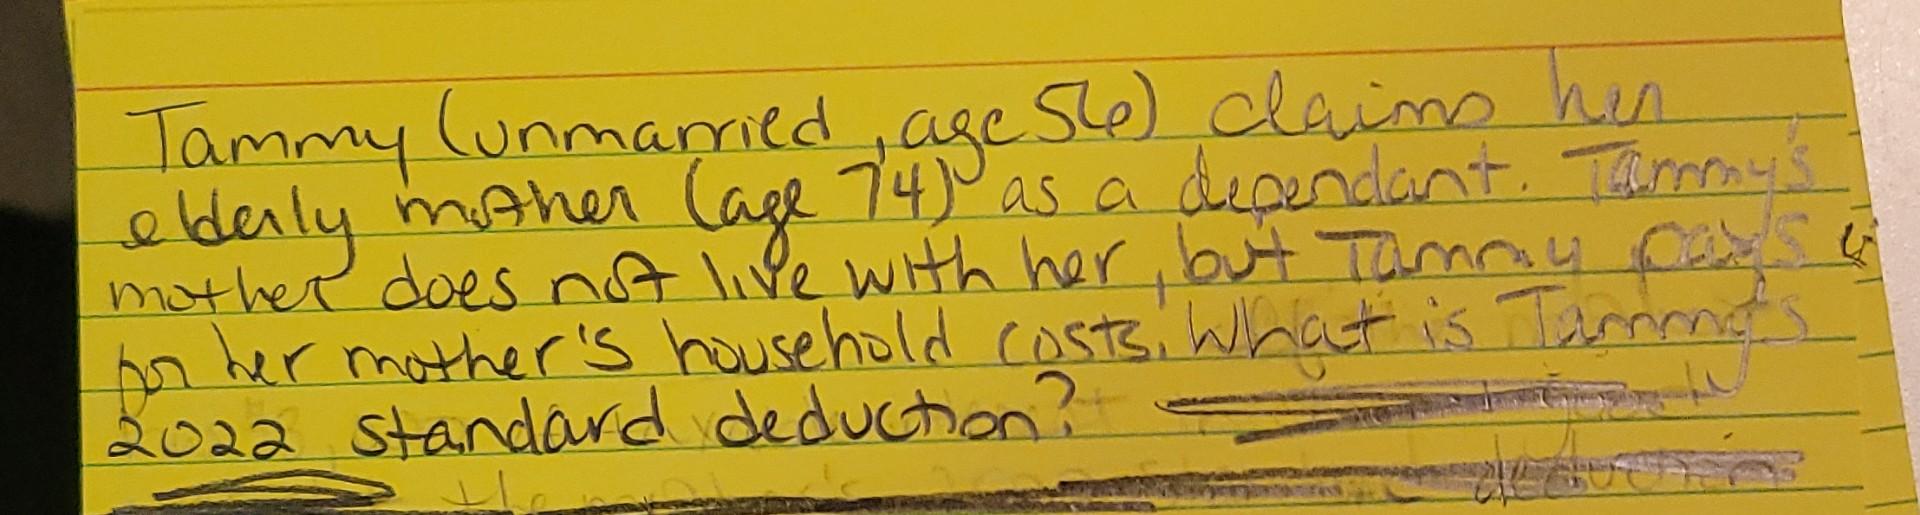 Tammy (unmarried, age 56) claims her
elderly mother (age 74) as a dependant. Tammy's
mother does not live with her, but Tammy pays
for her mother's household costs. What is Tammy's
2022 standard deduction?
deduction